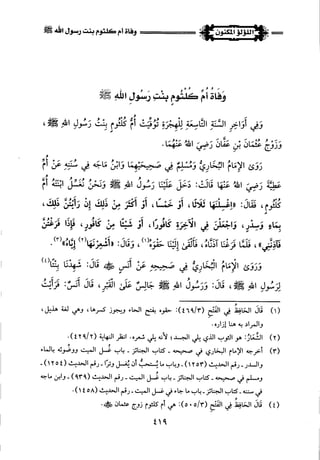 اللؤلؤ المكنون
وفاة أم كلثوم بنت رسول الله ﷺ
وَفَاةُ أُمِّ كُلْثُومٍ بِنْتِ رَسُولِ اللهِ ﷺ
وَفِي أَوَاخِرِ السَّنَةِ التَّاسِعَةِ لِلْهِجْرَةِ تُوُفِّيَتْ أُمُّ كُلْثُومٍ بِنْتُ رَسُولِ اللهِ ﷺ،
وَزَوْجُ عُثْمَانَ بْنِ عَفَّانَ رَضِيَ اللهُ عَنْهُمَا.
رَوَى الْإِمَامُ الْبُخَارِيُّ وَمُسْلِمٌ فِي صَحِيحَيْهِمَا وَابْنُ مَاجَه فِي سُنَنِهِ عَنْ أُمِّ
عَطِيَّةَ رَضِيَ اللهُ عَنْهَا قَالَتْ: دَخَلَ عَلَيْنَا رَسُولُ اللهِ ﷺ وَنَحْنُ نُغَسِّلُ ابْنَتَهُ أُمَّ
كُلْثُومٍ، فَقَالَ: «اغْسِلْنَهَا ثَلَاثًا، أَوْ خَمْسًا، أَوْ أَكْثَرَ مِنْ ذَلِكَ إِنْ رَأَيْتُنَّ ذَلِكَ،
بِمَاءٍ وَسِدْرٍ، وَاجْعَلْنَ فِي الْآخِرَةِ كَافُورًا، أَوْ شَيْئًا مِنْ كَافُورٍ، فَإِذَا فَرَغْتُنَّ
فَآذِنَّنِي»، فَلَمَّا فَرَغْنَا آذَنَّاهُ، فَأَلْقَى إِلَيْنَا حَقْوَهُ(١)، وَقَالَ: «أَشْعِرْنَهَا(٢) إِيَّاهُ»(٣).
وَرَوَى الْإِمَامُ الْبُخَارِيُّ فِي صَحِيحِهِ عَنْ أَنَسٍ ﷺ قَالَ: شَهِدْنَا بِنْتًا(٤)
لِرَسُولِ اللهِ ﷺ، قَالَ: وَرَسُولُ اللهِ ﷺ جَالِسٌ عَلَى الْقَبْرِ، قَالَ أَنَسٌ: فَرَأَيْتُ
(١) قال الحافظ في الفتح (٤٦٩/٣): حقوه بفتح الحاء ويجوز كسرها، وهي لغة هذيل،
والمراد به هنا إزاره.
(٢) الشِّعَارُ: هو الثوب الذي يلي الجسد؛ لأنه يلي شعره. انظر النهاية (٤٢٩/٢).
(٣) أخرجه الإمام البخاري في صحيحه - كتاب الجنائز - باب غسل الميت ووضوئه بالماء
والسدر - رقم الحديث (١٢٥٣) - وباب ما يستحب أن يغسل وترًا - رقم الحديث (١٢٥٤) -
ومسلم في صحيحه - كتاب الجنائز - باب في غسل الميت - رقم الحديث (٩٣٩) - وابن ماجه
في سننه - كتاب الجنائز - باب ما جاء في غسل الميت - رقم الحديث (١٤٥٨).
(٤) قال الحافظ في الفتح (٥٠٥/٣): هي أم كلثوم زوج عثمان ﷺ.
٤١٩